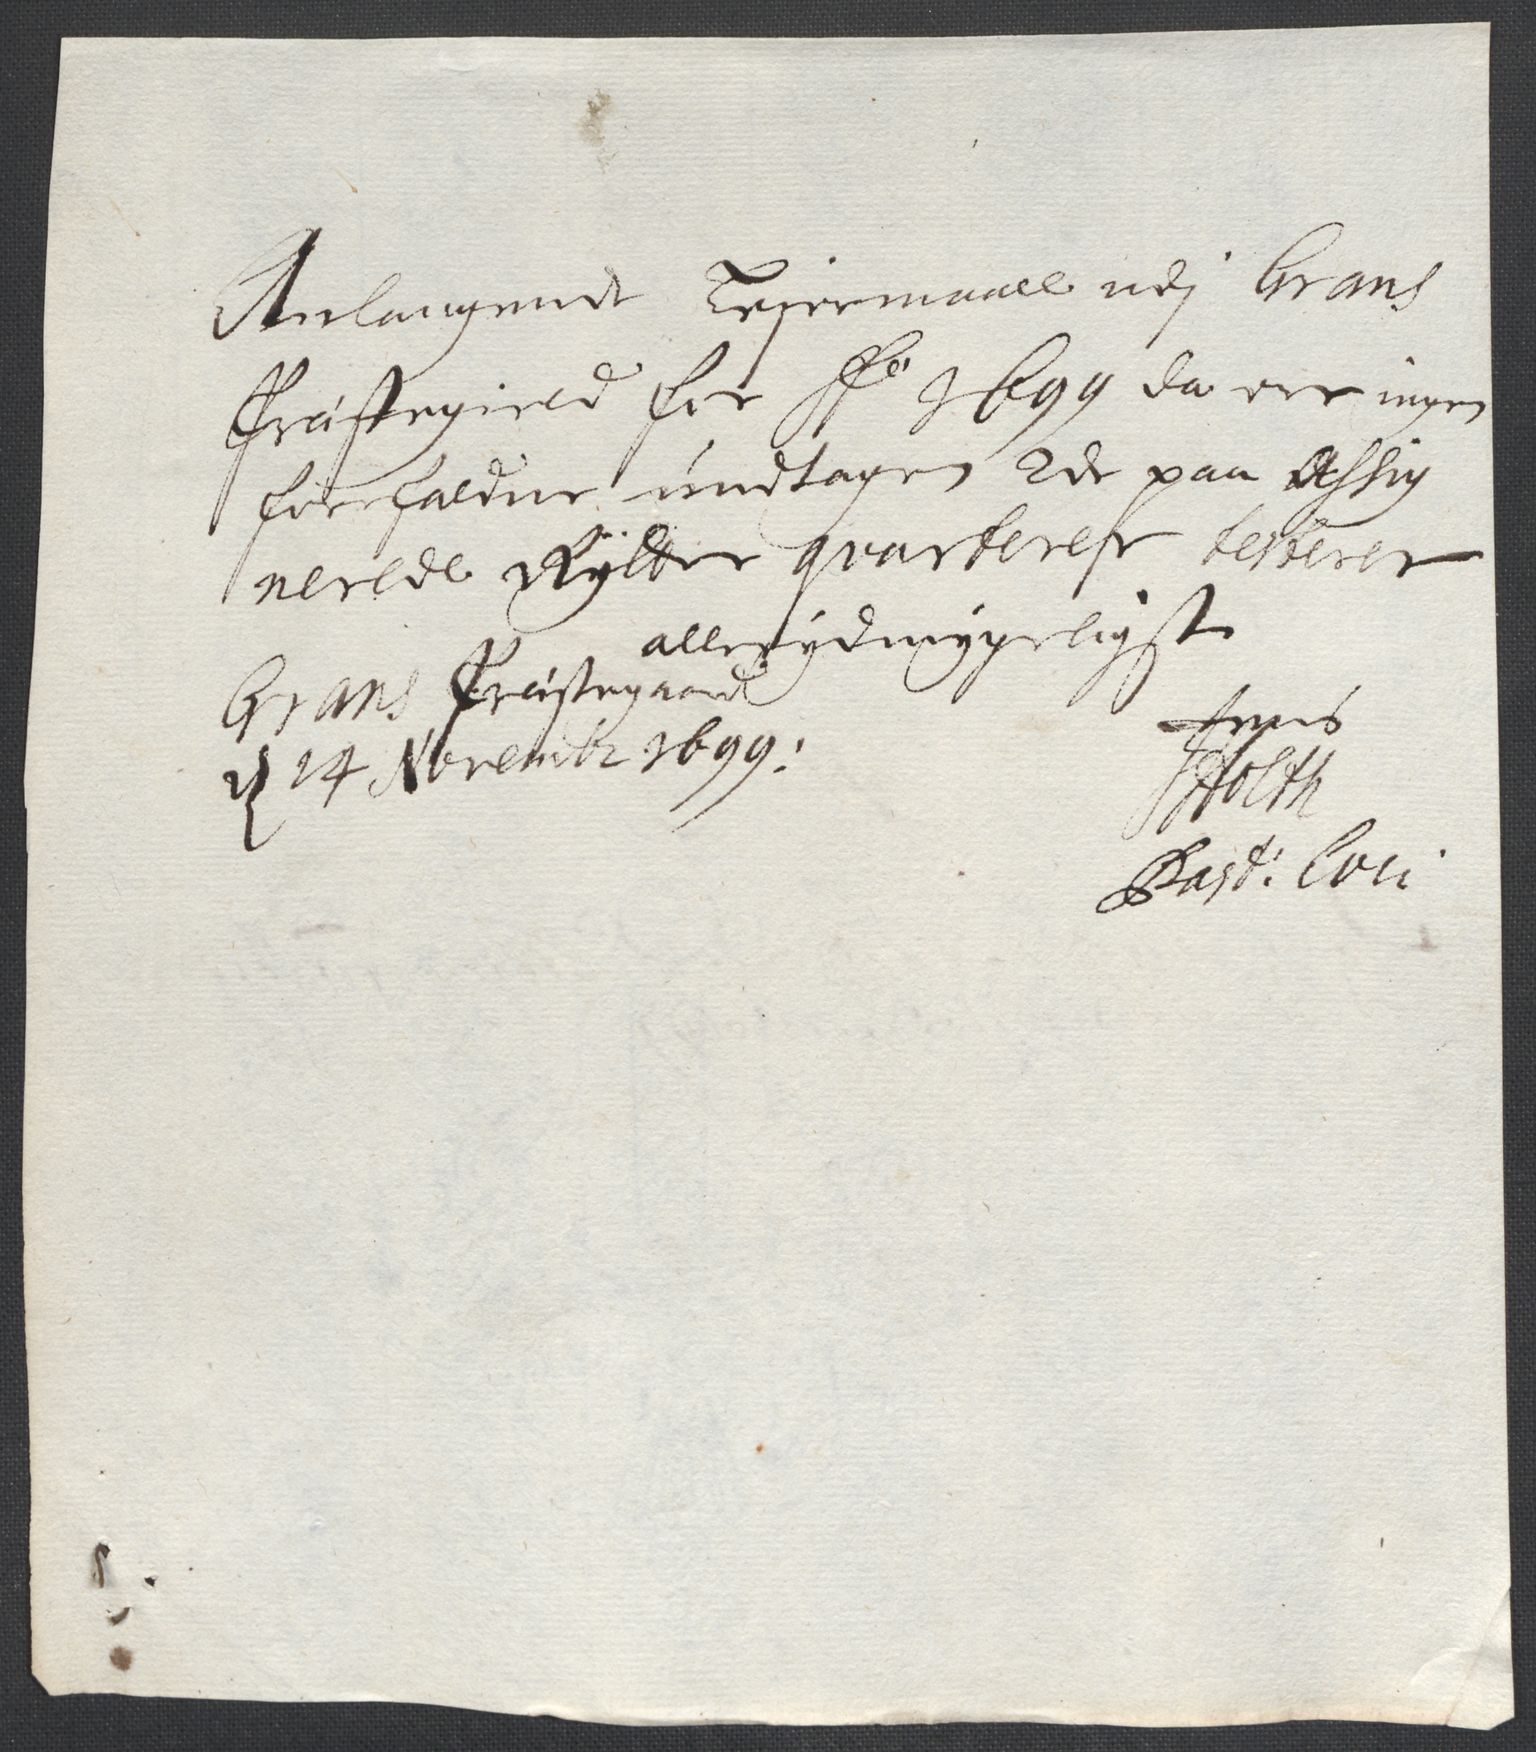 Anlangende Leiermaall udj Grans
Præstegield for A̅o̅ 1699 da er ingen
forfaldne undtagen 2de paa Assig
nerede Rÿtter qvarterer testerer
allerydmÿgeligst
Grans Præstegaard
d 14 Novembr 1699:
Jens
Holth
Past: Loci